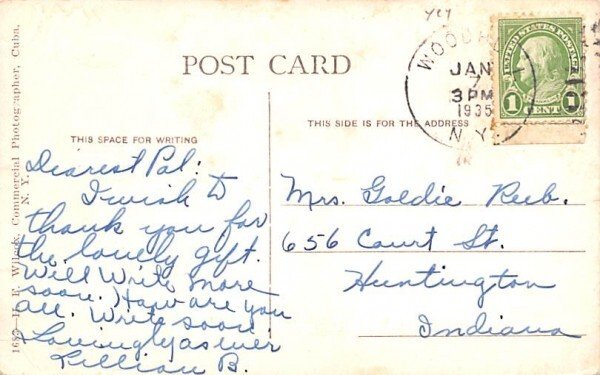 POST CARD
THIS SPACE FOR WRITING
THIS SIDE IS FOR THE ADDRESS
UNITED STATES POSTAGE
1 CENT 1
JAN
7
3 PM
1935
N.Y.
Dearest Pal:
I wish to
thank you for
the lovely gift.
Will write more
soon. How are you
all. Write soon
Lovingly as ever
Lillian B.
Mrs. Goldie Reeb.
656 Court St.
Huntington
Indiana
Commercial Photographer, Cuba,
N. Y.